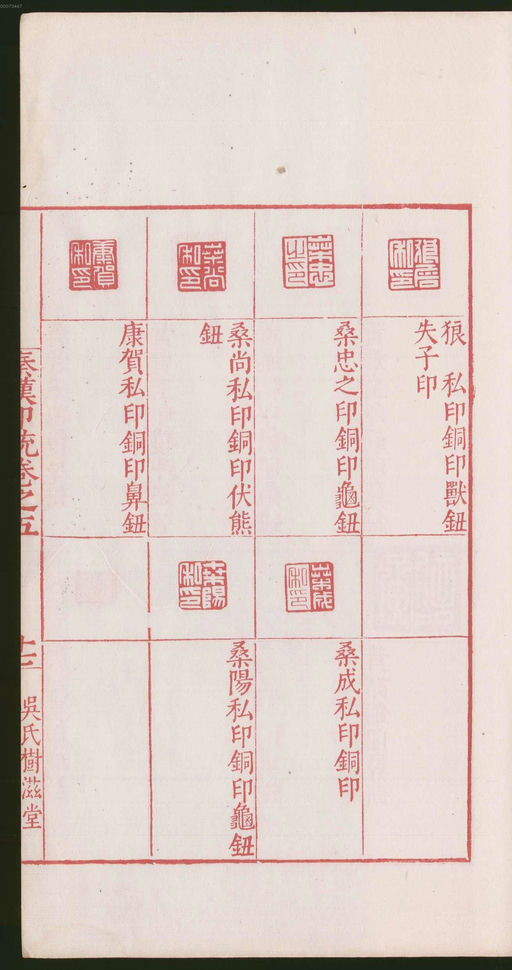 狼　私印銅印獸鈕
失子印
桑忠之印銅印龜鈕
桑尚私印銅印伏熊
鈕
康賀私印銅印鼻鈕
桑成私印銅印
桑陽私印銅印龜鈕
秦漢印統卷之五
十二
吳氏樹滋堂
00073447